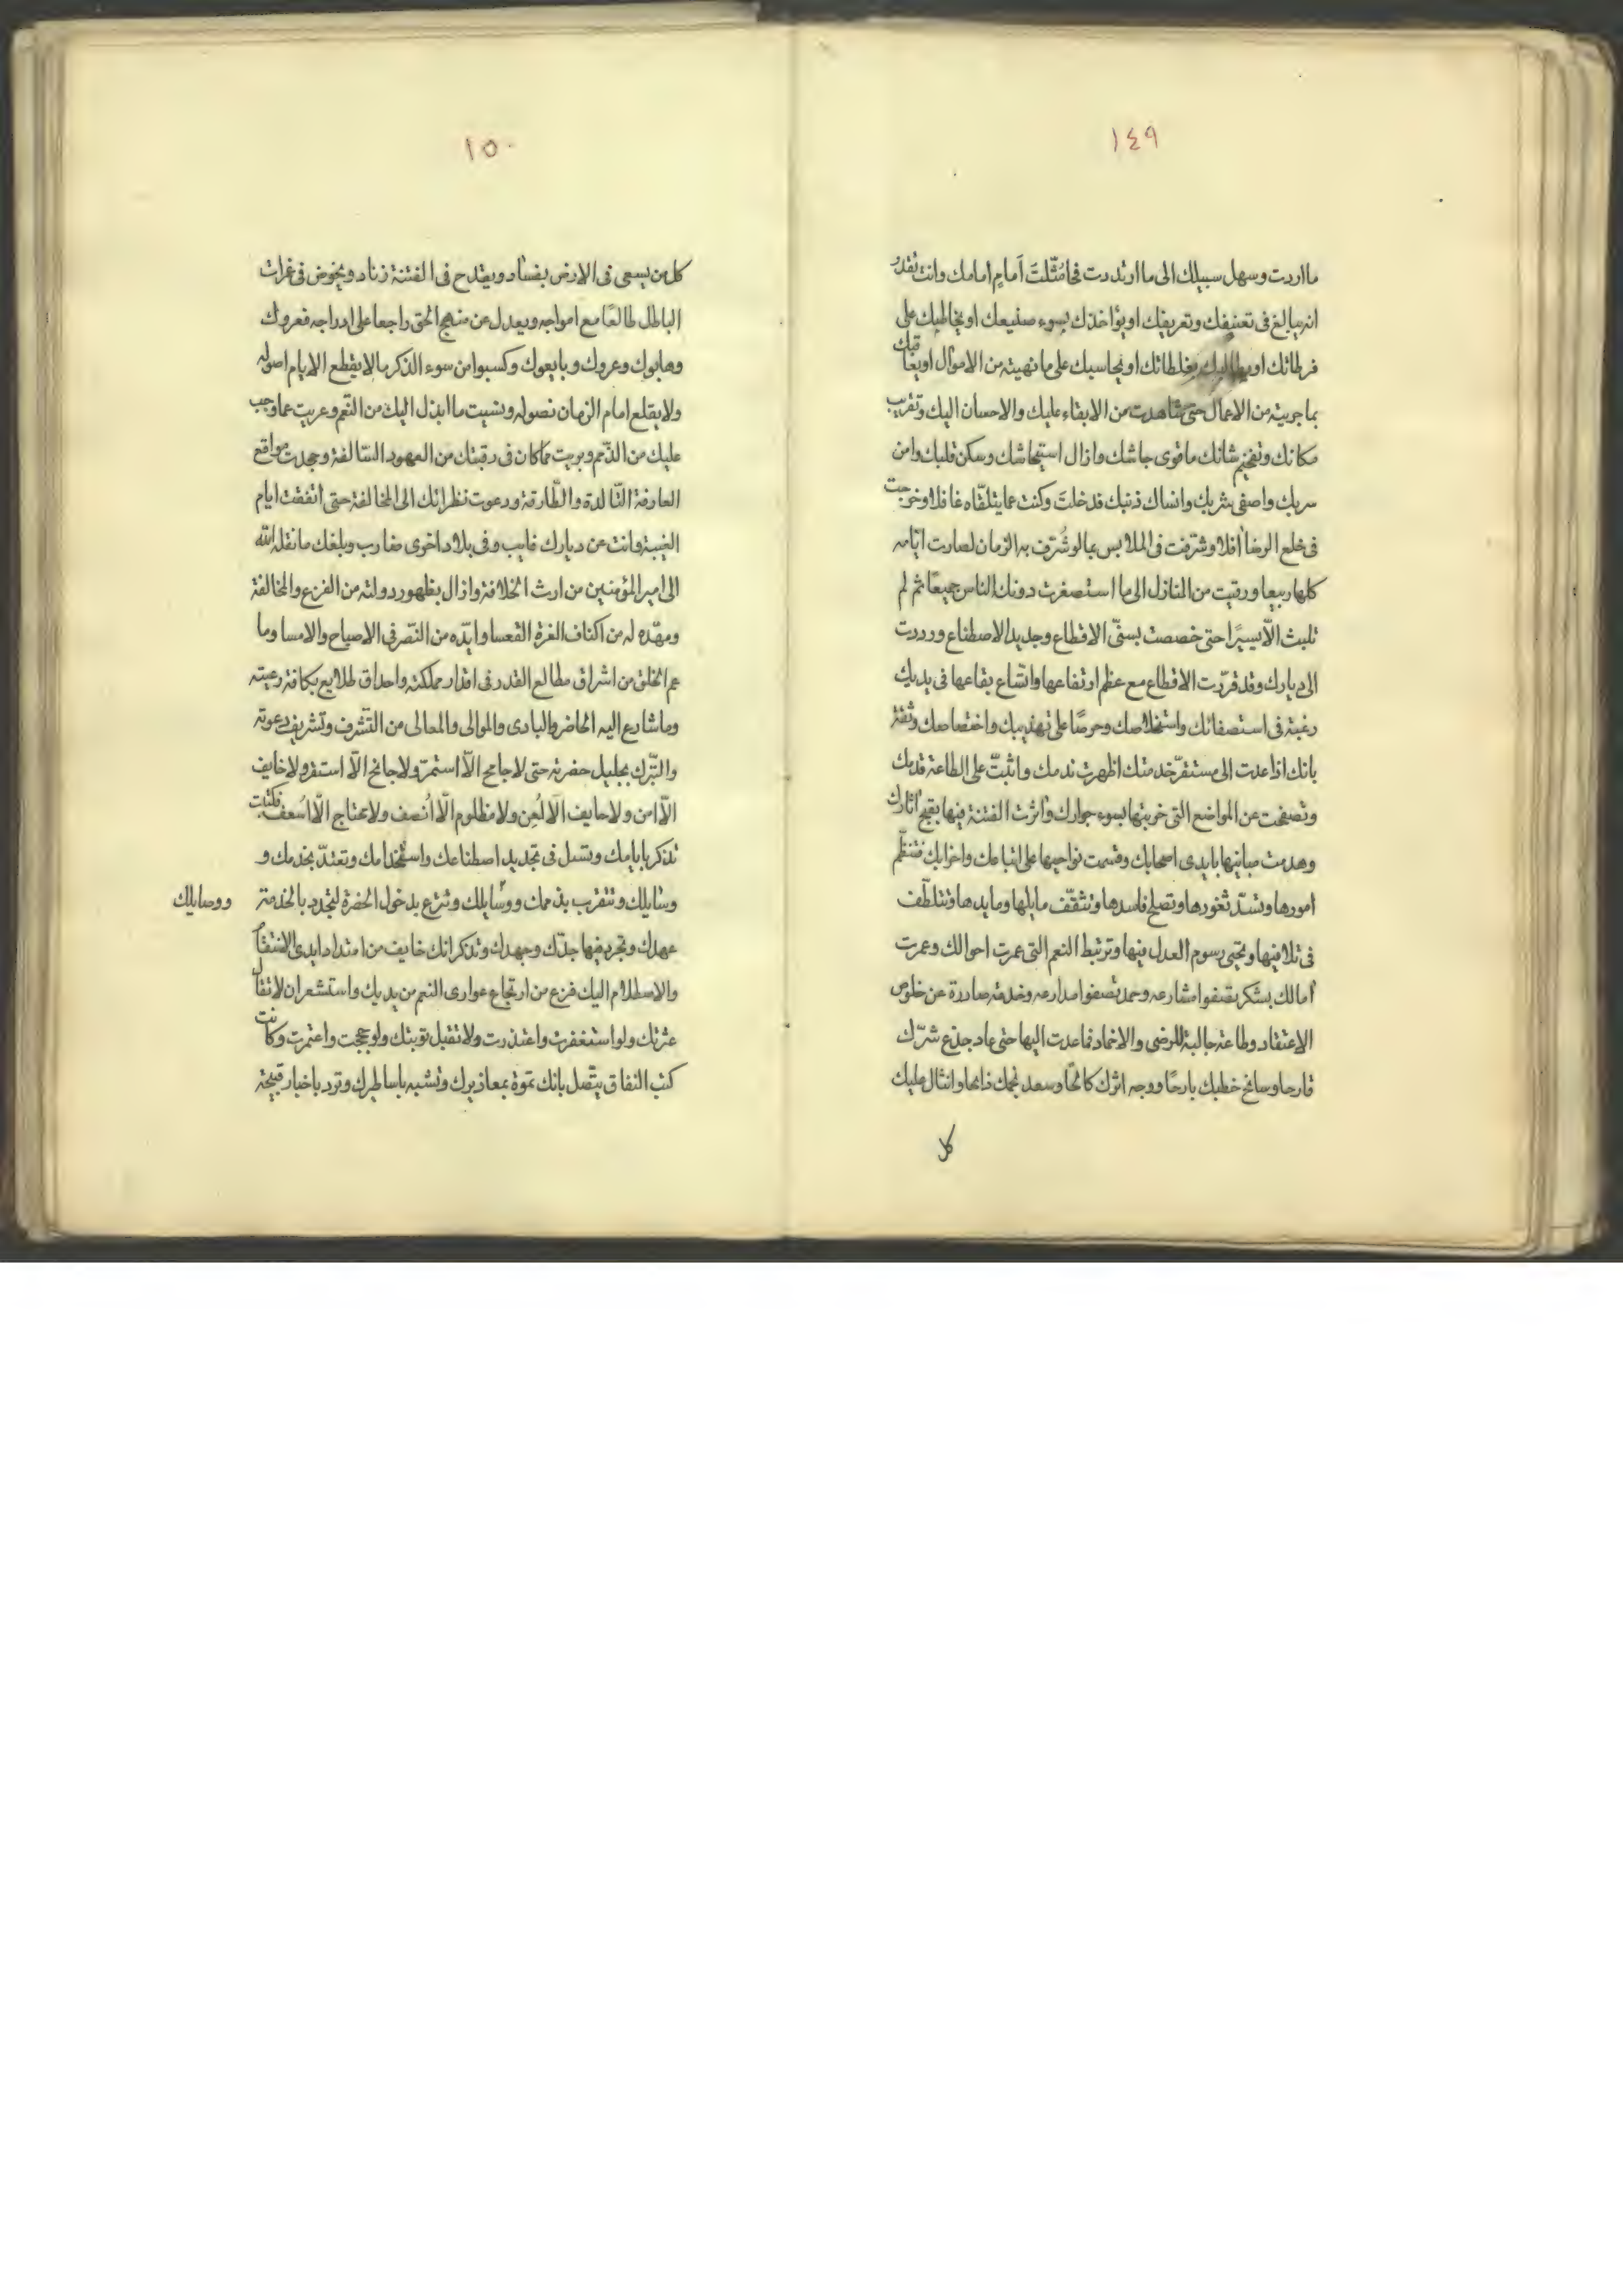 ١٤٩
ما اردت وسهل سبيلك الى ما ارتدت فحا مُثّلتَ اَمام امامك وانت تقدر
انه يبالغ فى تعنيفك وتعريفك او يؤاخذك بسوء صنيعك او يخاطبك على
فرطاتك او يطالبك بغلطاتك او يحاسبك على ما نهيته من الاموال او يعاقبك
بما جريته من الاعمال حتى شاهدت من الابقاء عليك والاحسان اليك وتقريب
مكانك وتفخيم شانك ما قوى جاشك وازال استيحاشك وسكن قلبك وامن
سربك واصفى شربك وانساك ذنبك فدخلتَ وكنت عما يتلقّاه غافلا وخرجت
فى خلع الرضا رافلا وشرّفت فى الملابس بما لو شُرّف به الزمان لصارت ايّامه
كلها ربيعا ورقيت من المنازل الى ما استصغرت دونك الناس جميعًا ثم لم
تلبث الّا يسيرًا حتى خصصت بسنىّ الاقطاع وجديد الاصطناع ورددت
الى ديارك وقد قرّرت الاقطاع مع عظم ارتفاعها واتّساع بقاعها فى يديك
رغبة فى استصفائك واستخلاصك وحرصًا على تهذيبك واختصاصك وثقة
بانك اذا عدت الى مستقرّ خدمتك اظهرت ندمك واثبتّ على الطاعة قدمك
وتصفحت عن المواضع التى خربتها بسوء جوارك واثرت الفتنة فيها بقبح اثارك
وهدمت مبانيها بايدى اصحابك وقسمت نواحيها على اتباعك واحزابك فتنظّم
امورها وتسدّ ثغورها وتصلح فاسدها وتثقّف مايلها ومايدها وتتلطّف
فى تلافيها وتحيى رسوم العدل فيها وترتبط النعم التى عمرت احوالك وغمرت
امالك بشكر تصفوا مشارعه وحمد تضفوا مدارعه وخدمة صادرة عن خلوص
الاعتقاد وطاعة جالبة للرضى والاحماد فما عدت اليها حتى عاد جذع شرّك
قارحا وسانح خطبك بارحًا ووجه اثرك كالحًا وسعد نجمك ذابحا وانثال عليك
كل
١٥٠
كل من يسعى فى الارض بفساد ويقدح فى الفتنة زناد ويخوض فى غمرات
الباطل طالعًا مع امواجه ويعدل عن منهج الحق راجعا على ادراجه فعروك
وهابوك وعروك وبايعوك وكسبوا من سوء الذكر ما لا يقطع الايام اصوله
ولا يقلع امام الزمان نصوله ونسيت ما ابذل اليك من النّعم وعريت عما وجب
عليك من الذّمم وبريت مما كان فى رقبتك من العهود السّالفة وجحدت مواقع
العارفة التّالدة والطّارفة ودعوت نظرائك الى المخالفة حتى اتفقت ايام
الغيبة وانت عن ديارك غايب وفى بلاد اخرى مغارب وبلغك ما نقله الله
الى امير المؤمنين من ارث الخلافة وازال بظهور دولته من الفزع والمخافة
ومهّده له من اكناف العزة القعسا وايّده من النّصر فى الاصباح والامسا وما
عم الخلق من اشراق مطالع القدر فى اقدار مملكته واحداق طلايع بكافة رعيته
وما شارع اليه الحاضر والبادى والموالى والمعالى من التّشرف وتشريف دعوته
والتبّرك بجليل حضرته حتى لا جامح الّا استمرّ ولا جانح الّا استقر ولا خايف
الّا امن ولا حايف الّا لُعِن ولا مظلوم الّا اُنصف ولا محتاج الّا اُسعف فكتبت
تذكر بايامك وتسل فى تجديد اصطناعك واستخدامك وتعتدّ بخدمك و
وسايلك وتتقرب بذممك ووسايلك وتترع بدخول الحضرة لتجدد بالخدمة
ووصايلك
عهدك وتجرد فيها جدّك وجهدك وتذكر انك خايف من امتداد ايدى الانتقام
والاصطلام اليك فزع من ارتجاع عوارى النعم من يديك واستشعر ان لا تقال
عثرتك ولو استغفرت واعتذرت ولا تقبل توبتك ولو حججت واعتمرت وكانت
كتب النفاق يتّصل بانك تموّة بمعاذيرك وتشبه باساطيرك وترد باخبار قبيحة